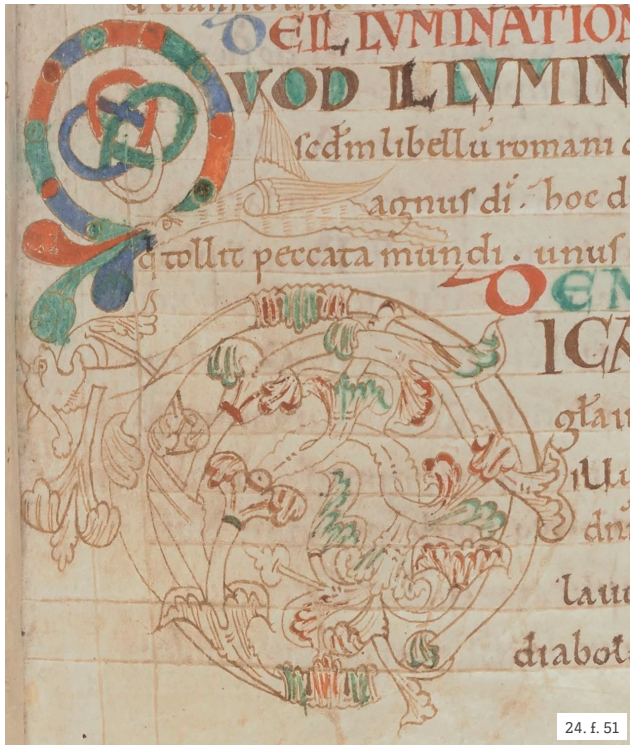 DE ILLVMINATION
QVOD ILLVMIN
scdm libellū romani
agnus di. hoc d
q tollit peccata mundi . unus
DE
ICA
glau
illu
laud
diabol
24. f. 51